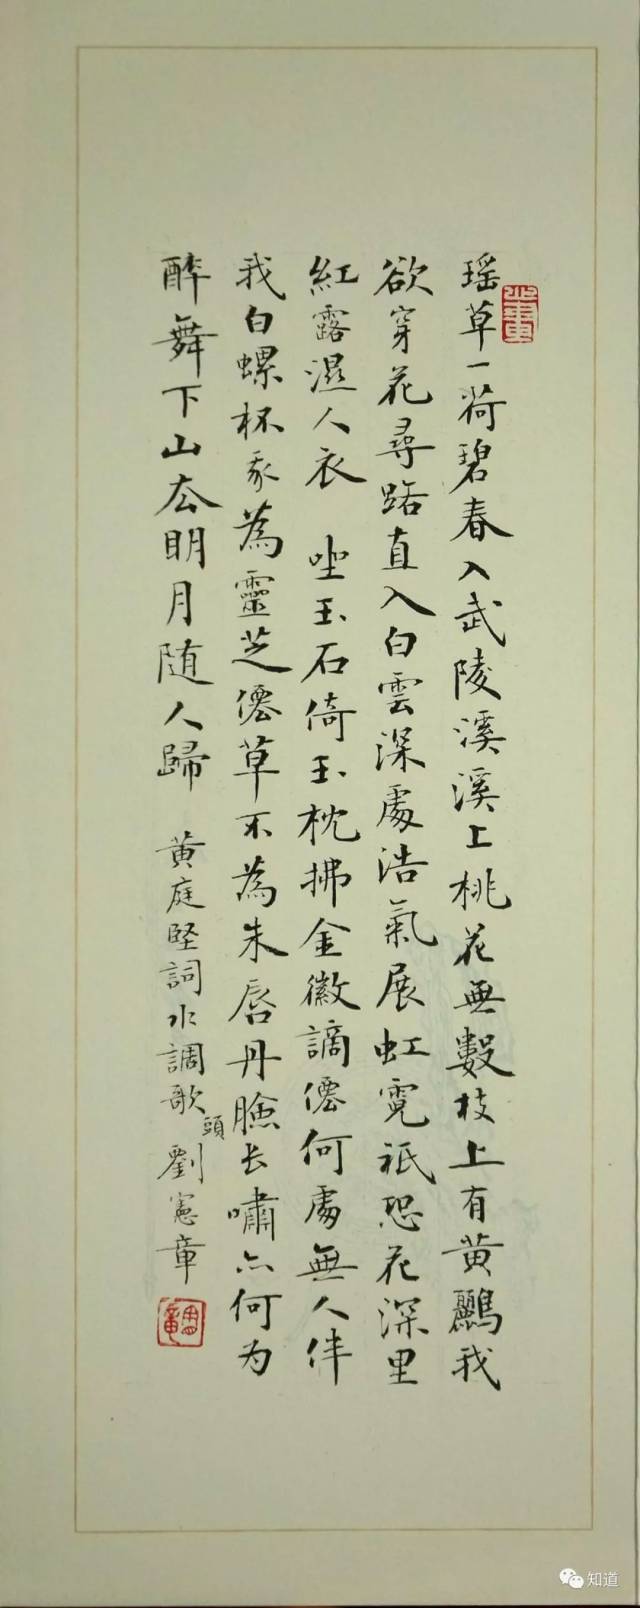 瑶草一荷碧春入武陵溪溪上桃花無數枝上有黄鸝我
欲穿花尋路直入白雲深處浩氣展虹霓祇恐花深里
紅露濕人衣 坐玉石倚玉枕拂金徽謫僊何處無人伴
我白螺杯我為靈芝僊草不為朱唇丹臉長嘯亦何为
醉舞下山去明月随人歸 黄庭堅詞水調歌頭 劉憲章
知道